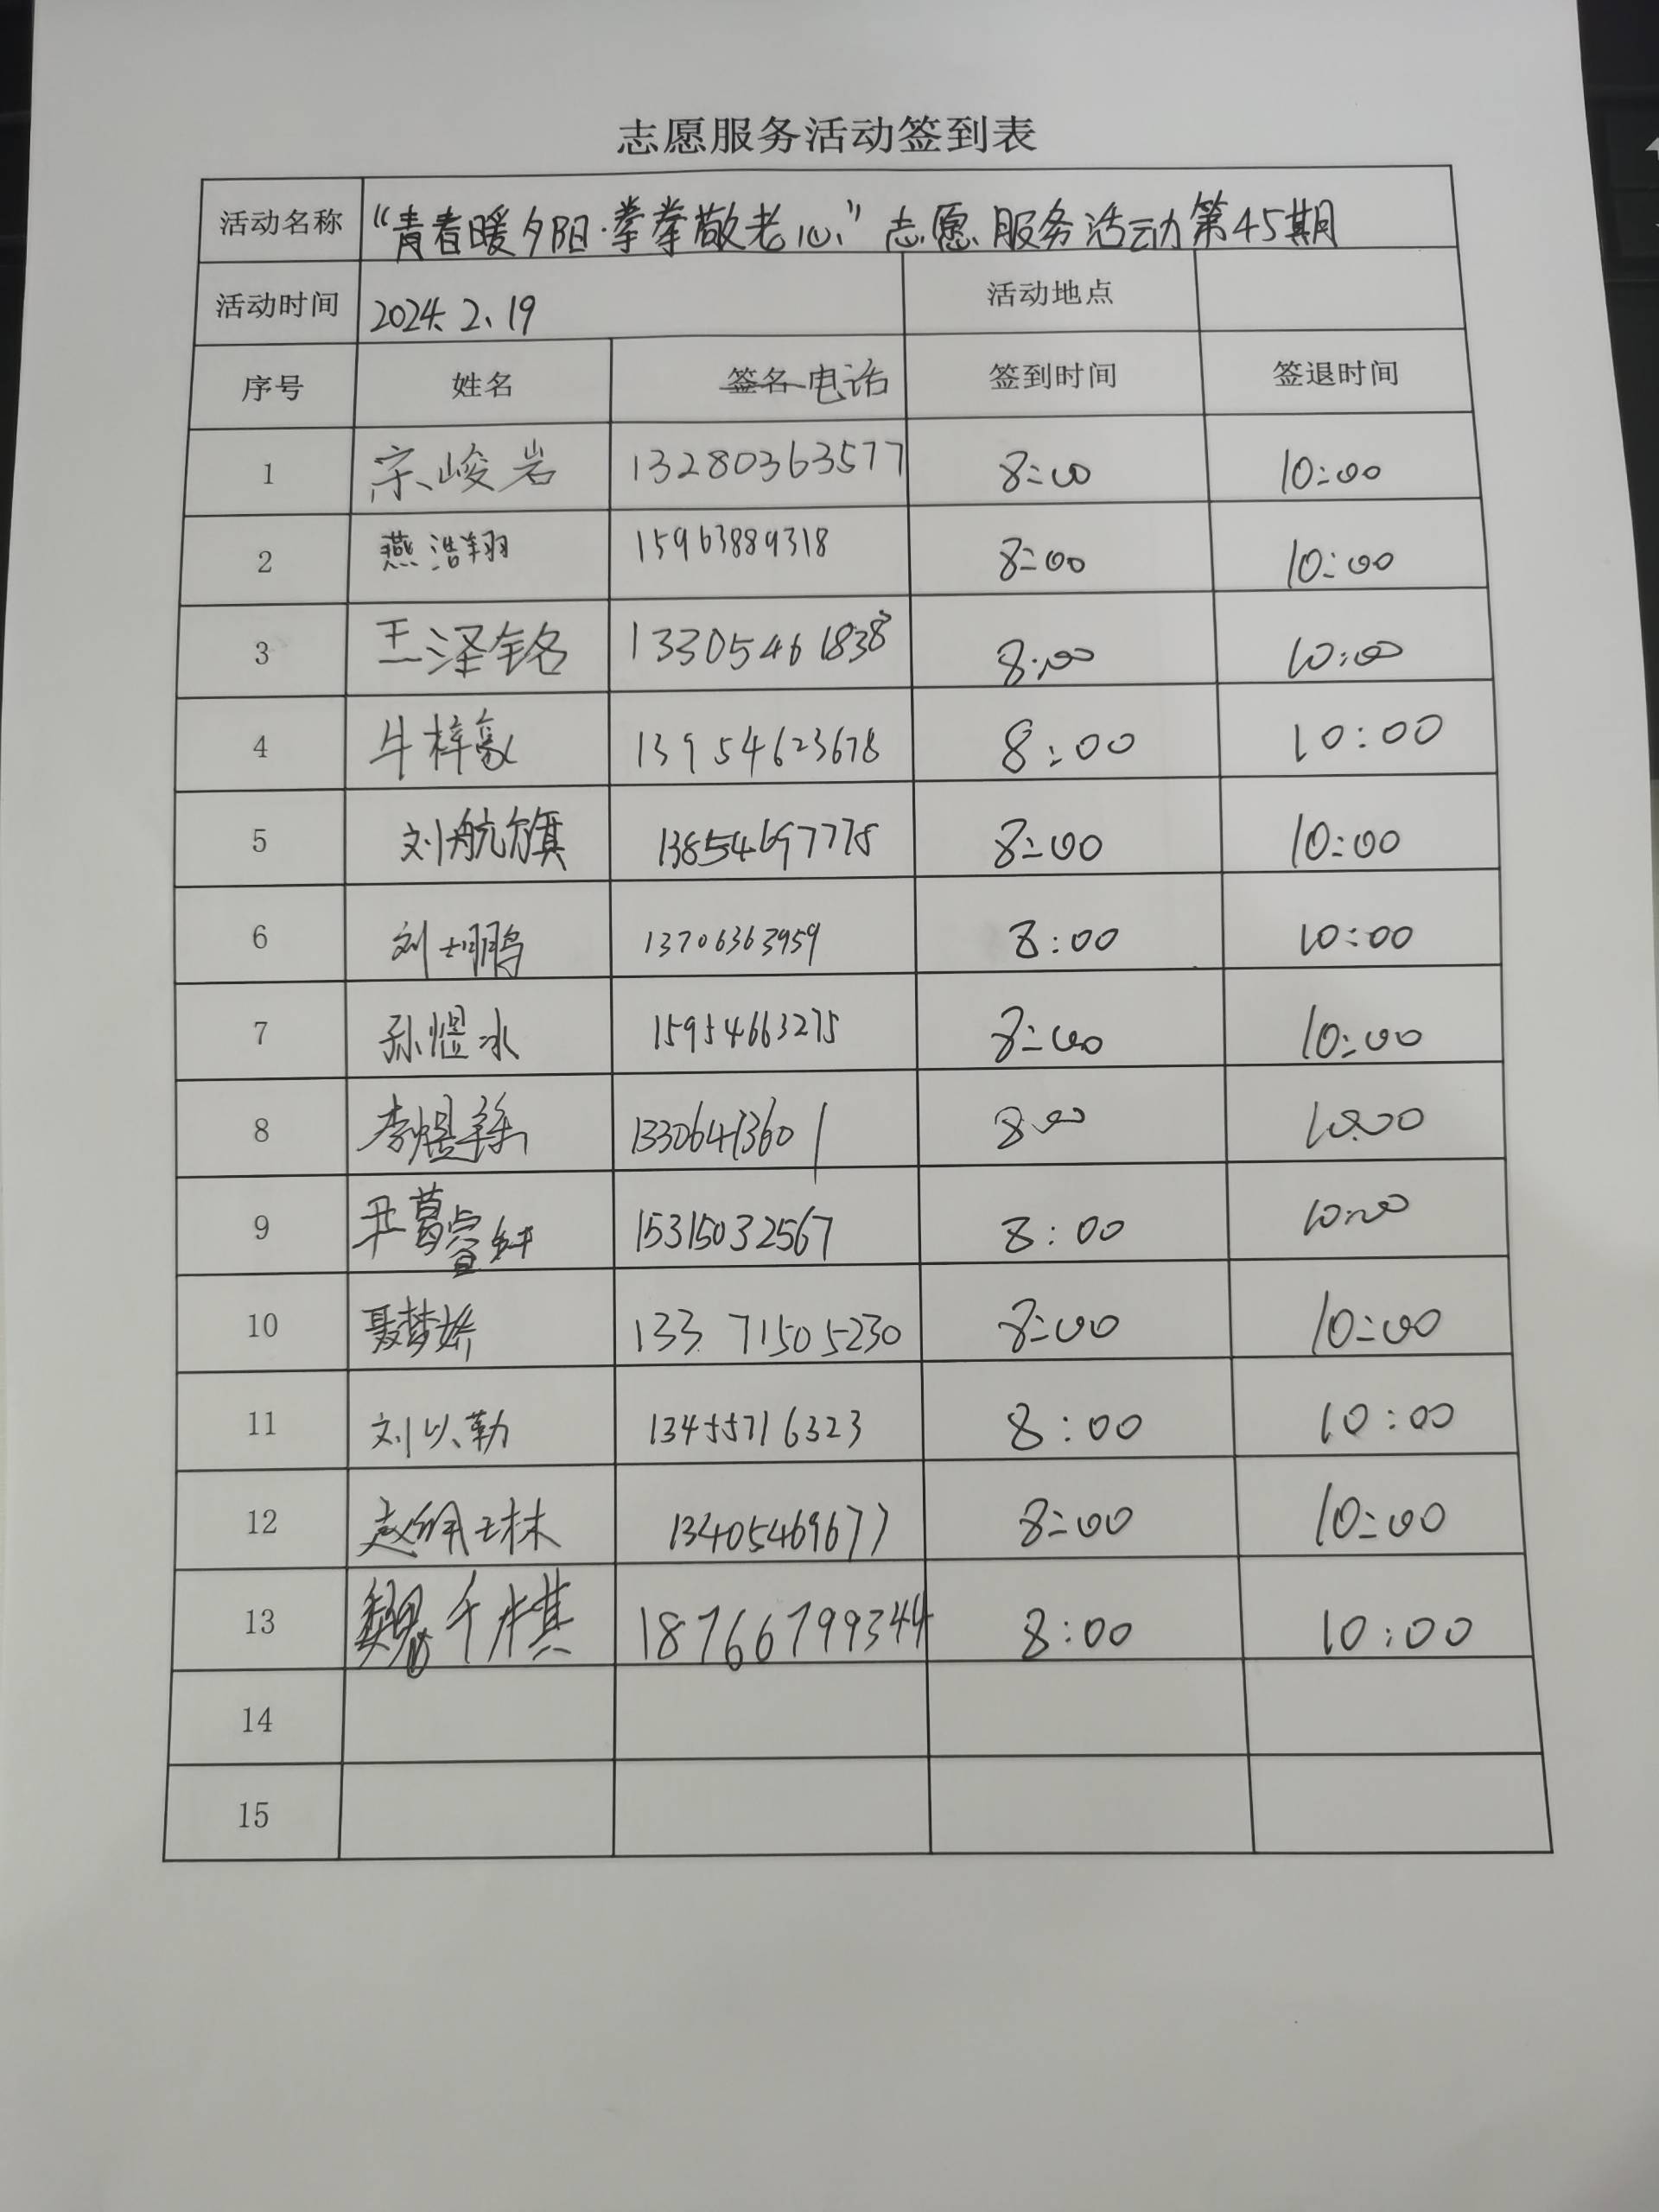 志愿服务活动签到表
活动名称 “青春暖夕阳·拳拳敬老心”志愿服务活动第45期
活动时间 2024.2.19 活动地点
序号 姓名 签名 电话 签到时间 签退时间
1 宗峻岩 13280363577 8:00 10:00
2 燕浩翔 15963889318 8:00 10:00
3 王泽铭 13305461838 8:00 10:00
4 牛梓豪 13954623678 8:00 10:00
5 刘航旗 13854697778 8:00 10:00
6 刘士鹏 13706363959 8:00 10:00
7 孙煜冰 15954663275 8:00 10:00
8 李煜 8:00 10:00
9 15315032567 8:00 10:00
10 聂梦娇 13371505230 8:00 10:00
11 刘以勒 13455716323 8:00 10:00
12 赵佩琳 13405469677 8:00 10:00
13 魏千棋 18766799344 8:00 10:00
14
15